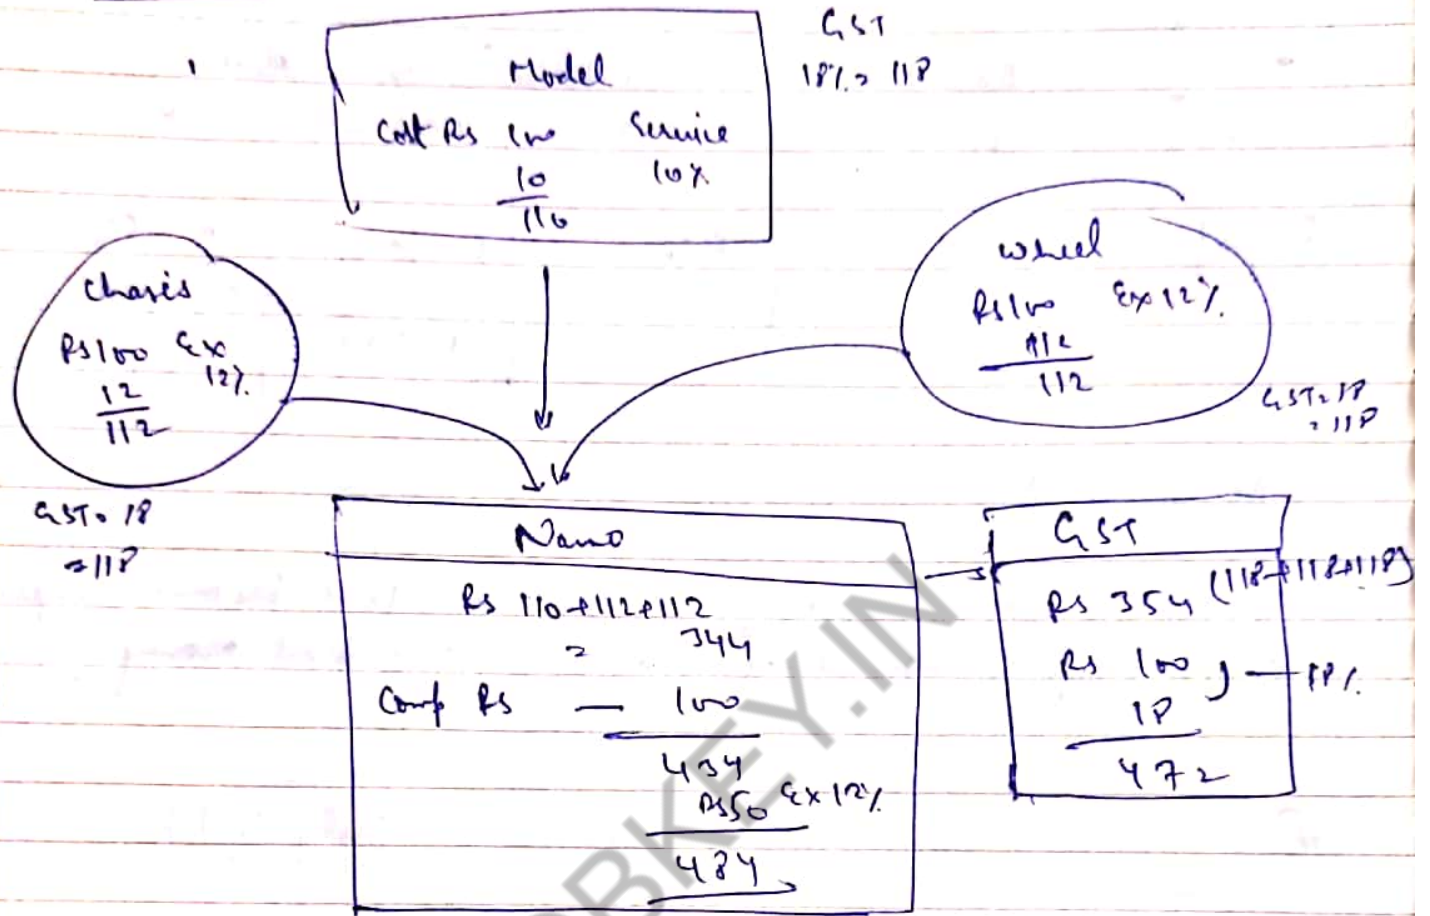 GST
18% = 118
Model
Cost Rs 100 Service
10 10%
110
Chasis
Rs 100 Ex
12 12%
112
GST = 18
= 118
Wheel
Rs 100 Ex 12%
112
112
GST = 18
= 118
Nano
Rs 110+112+112
= 344
Comp Rs — 100
434
Rs 50 Ex 12%
484
GST
Rs 354 (118+118+118)
Rs 100 — 18%
18
472
OBKEY.IN